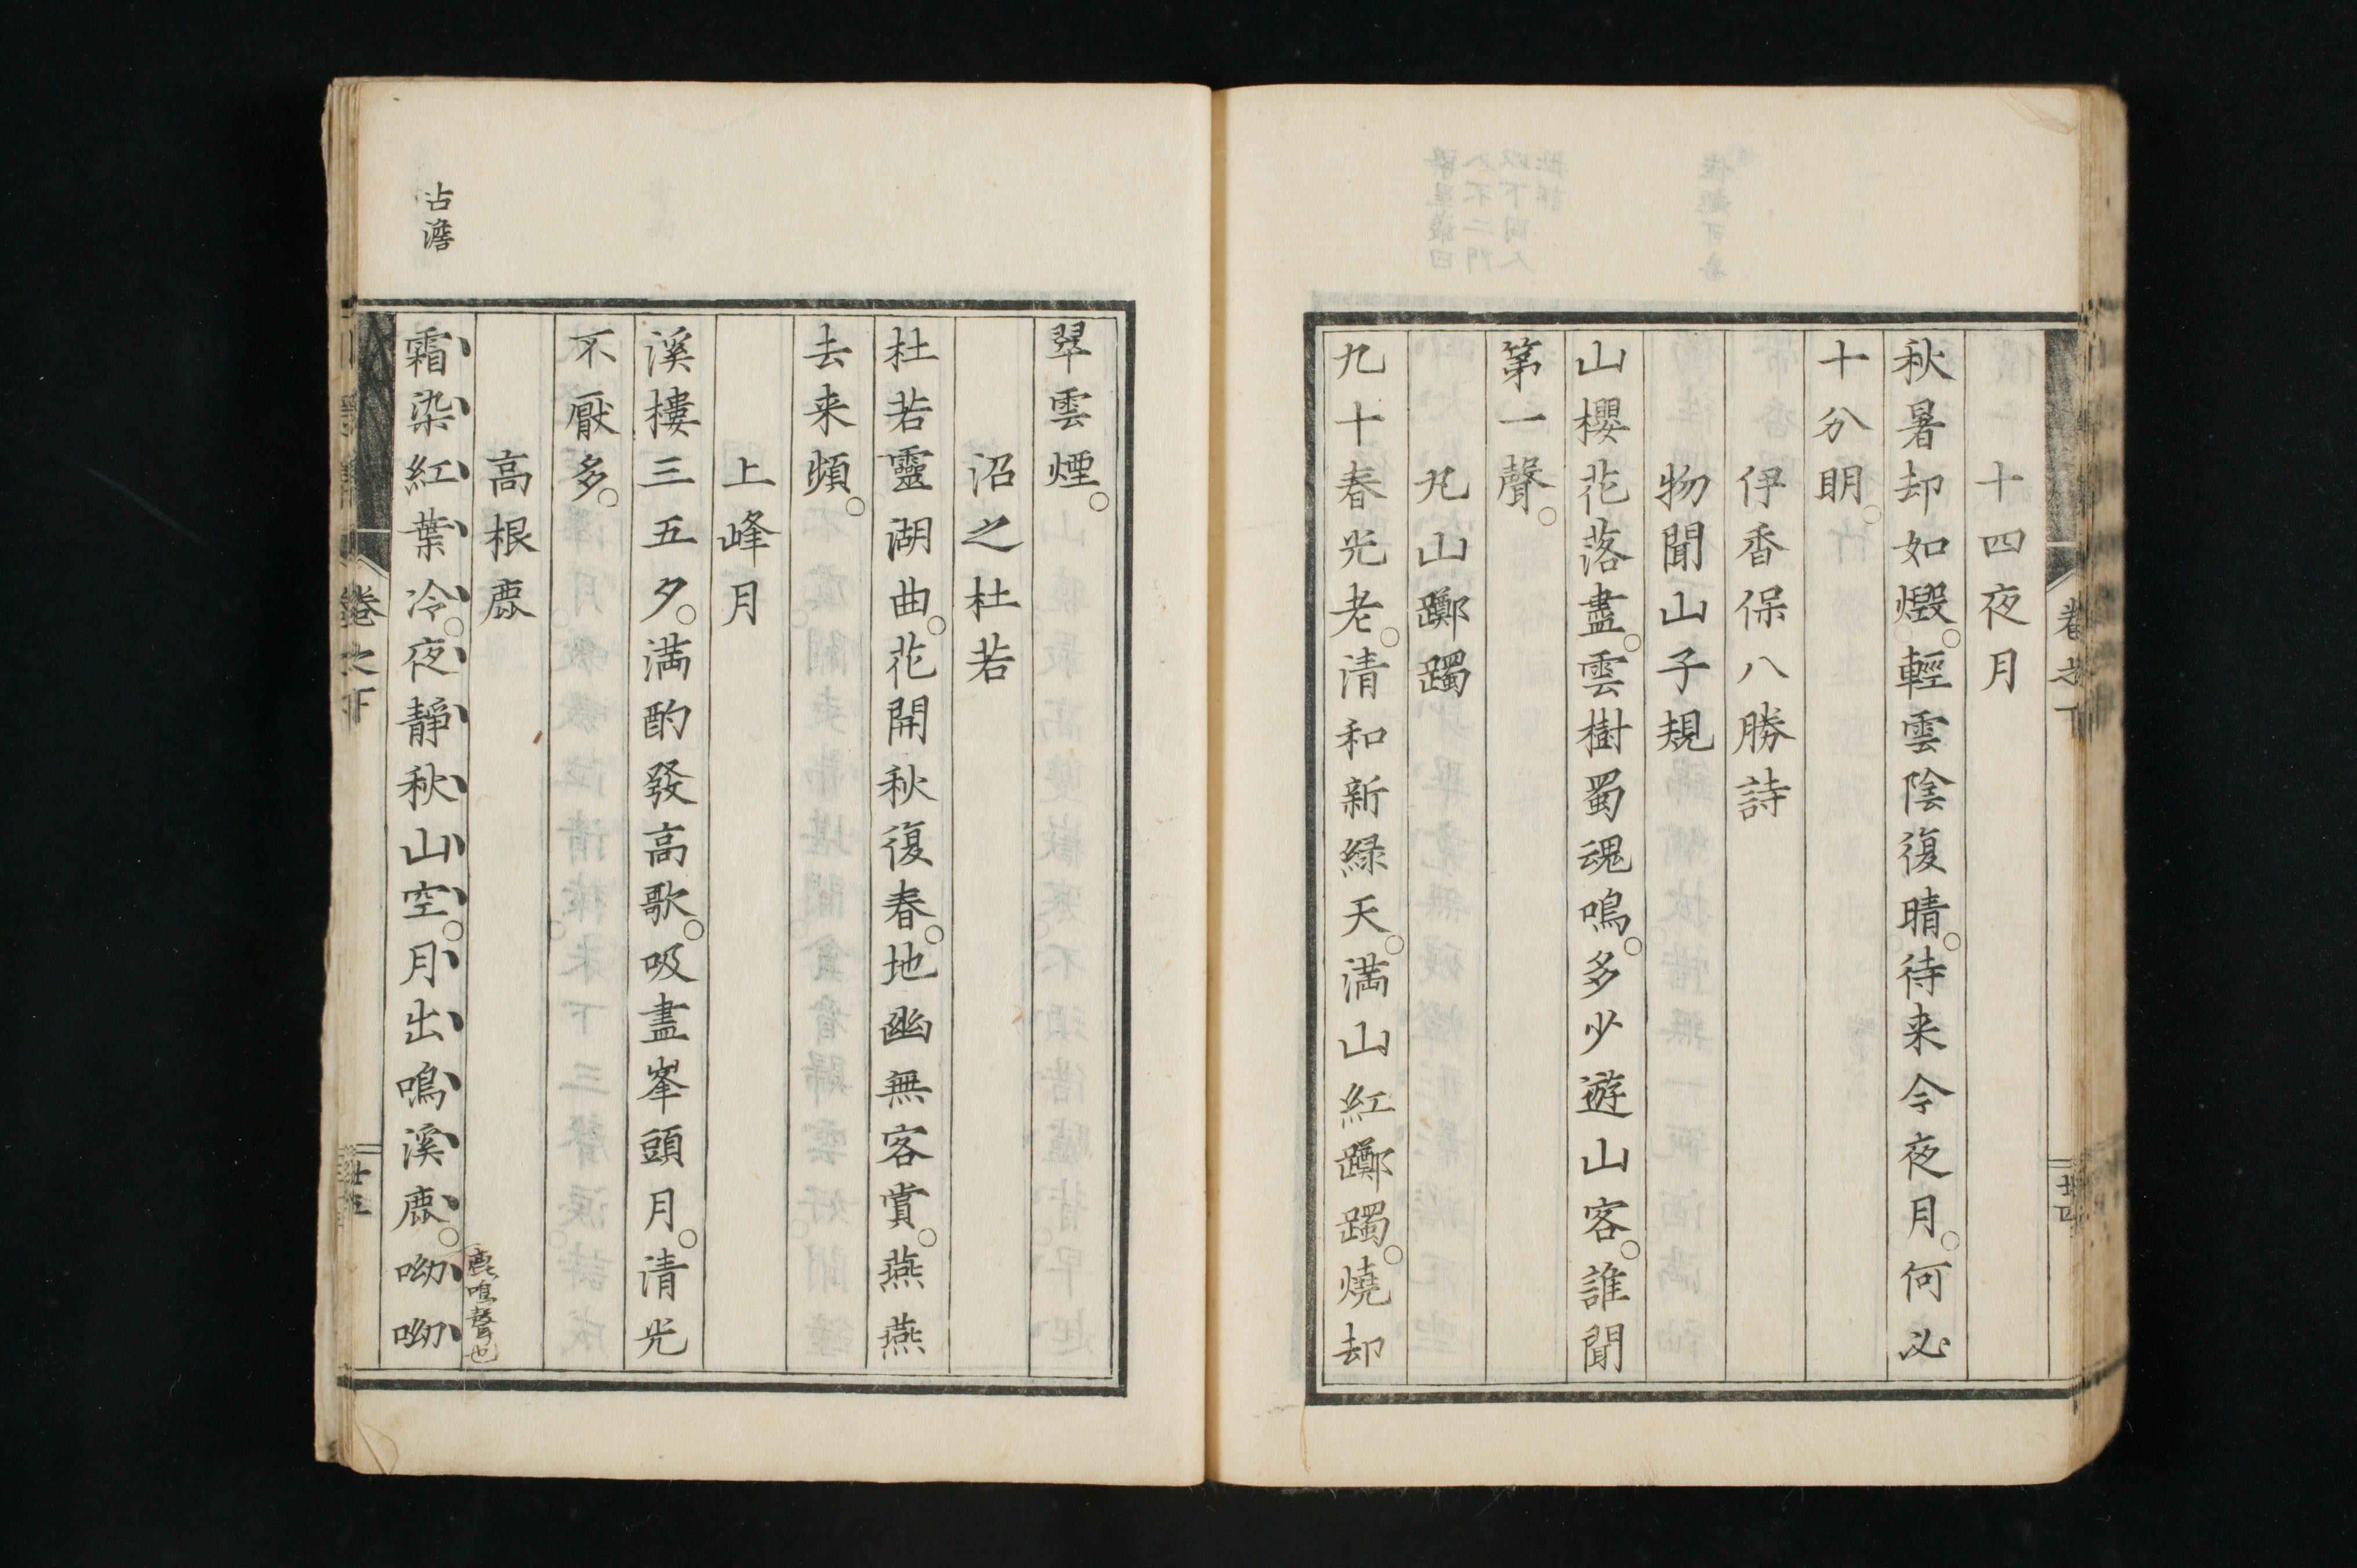 十四夜月
秋暑却如燬。輕雲陰復晴。待来今夜月。何必
十分明。
伊香保八勝詩
物聞山子規
山櫻花落盡。雲樹蜀魂鳴。多少遊山客。誰聞
第一聲。
九山躑躅
九十春光老。清和新緑天。満山紅躑躅。燒却
翠雲煙。
沼之杜若
杜若靈湖曲。花開秋復春。地幽無客賞。燕燕
去来頻。
上峰月
溪樓三五夕。満酌發高歌。吸盡峯頭月。清光
不厭多。
高根鹿
鹿鳴聲也
霜染紅葉冷。夜靜秋山空。月出鳴溪鹿。呦呦
古澹
卷之下
卷之下